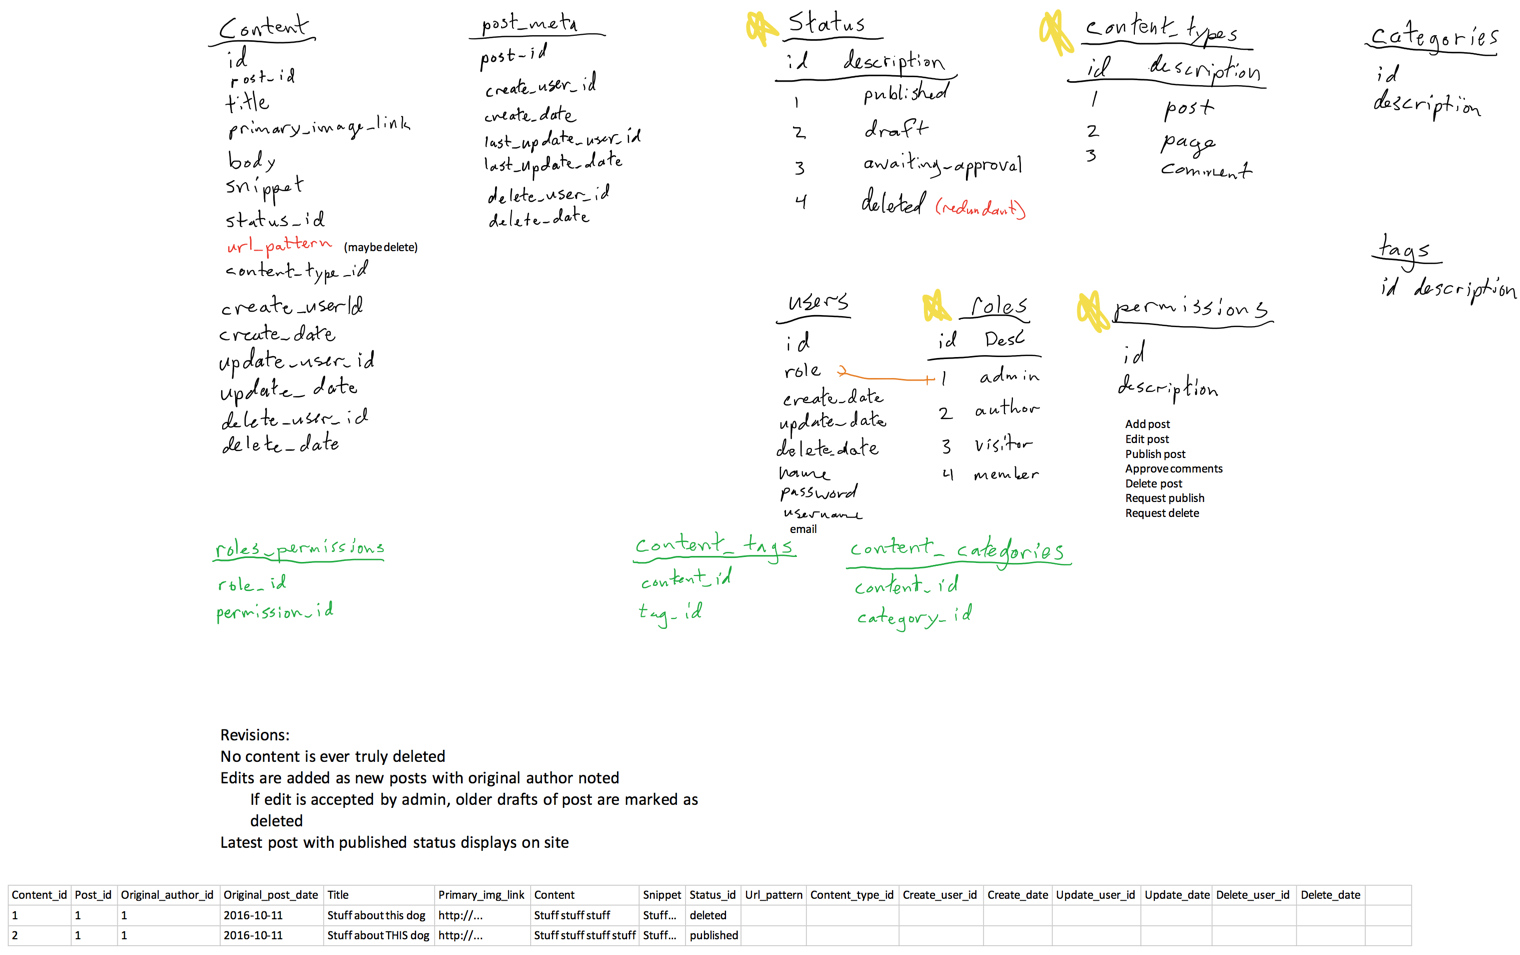 Content
id
post_id
title
primary_image_link
body
snippet
status_id
url_pattern (maybe delete)
content_type_id
create_userId
create_date
update_user_id
update_date
delete_user_id
delete_date
post_meta
post_id
create_user_id
create_date
last_update_user_id
last_update_date
delete_user_id
delete_date
Status
id description
1 published
2 draft
3 awaiting_approval
4 deleted (redundant)
content_types
id description
1 post
2 page
3 comment
categories
id
description
tags
id description
users
id
role
create_date
update_date
delete_date
name
password
username
email
roles
id Desc
1 admin
2 author
3 visitor
4 member
permissions
id
description
Add post
Edit post
Publish post
Approve comments
Delete post
Request publish
Request delete
roles_permissions
role_id
permission_id
content_tags
content_id
tag_id
content_categories
content_id
category_id
Revisions:
No content is ever truly deleted
Edits are added as new posts with original author noted
If edit is accepted by admin, older drafts of post are marked as
deleted
Latest post with published status displays on site
Content_id Post_id Original_author_id Original_post_date Title Primary_img_link Content Snippet Status_id Url_pattern Content_type_id Create_user_id Create_date Update_user_id Update_date Delete_user_id Delete_date
1 1 1 2016-10-11 Stuff about this dog http://... Stuff stuff stuff Stuff... deleted
2 1 1 2016-10-11 Stuff about THIS dog http://... Stuff stuff stuff stuff Stuff... published